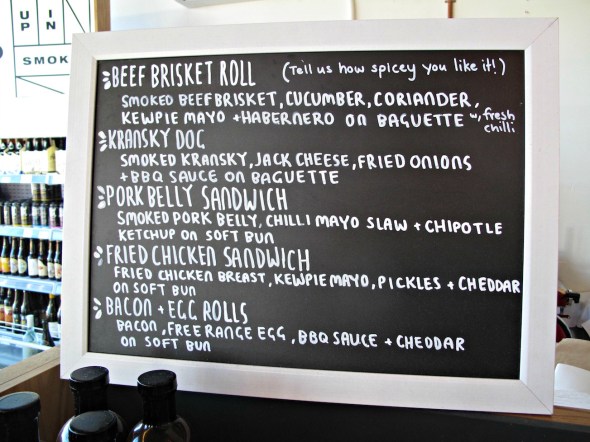 UP IN
SMOK
BEEF BRISKET ROLL (Tell us how spicey you like it!)
SMOKED BEEF BRISKET, CUCUMBER, CORIANDER,
KEWPIE MAYO + HABERNERO ON BAGUETTE w, fresh chilli
KRANSKY DOG
SMOKED KRANSKY, JACK CHEESE, FRIED ONIONS
+ BBQ SAUCE ON BAGUETTE
PORK BELLY SANDWICH
SMOKED PORK BELLY, CHILLI MAYO SLAW + CHIPOTLE
KETCHUP ON SOFT BUN
FRIED CHICKEN SANDWICH
FRIED CHICKEN BREAST, KEWPIE MAYO, PICKLES + CHEDDAR
ON SOFT BUN
BACON + EGG ROLLS
BACON, FREE RANGE EGG, BBQ SAUCE + CHEDDAR
ON SOFT BUN